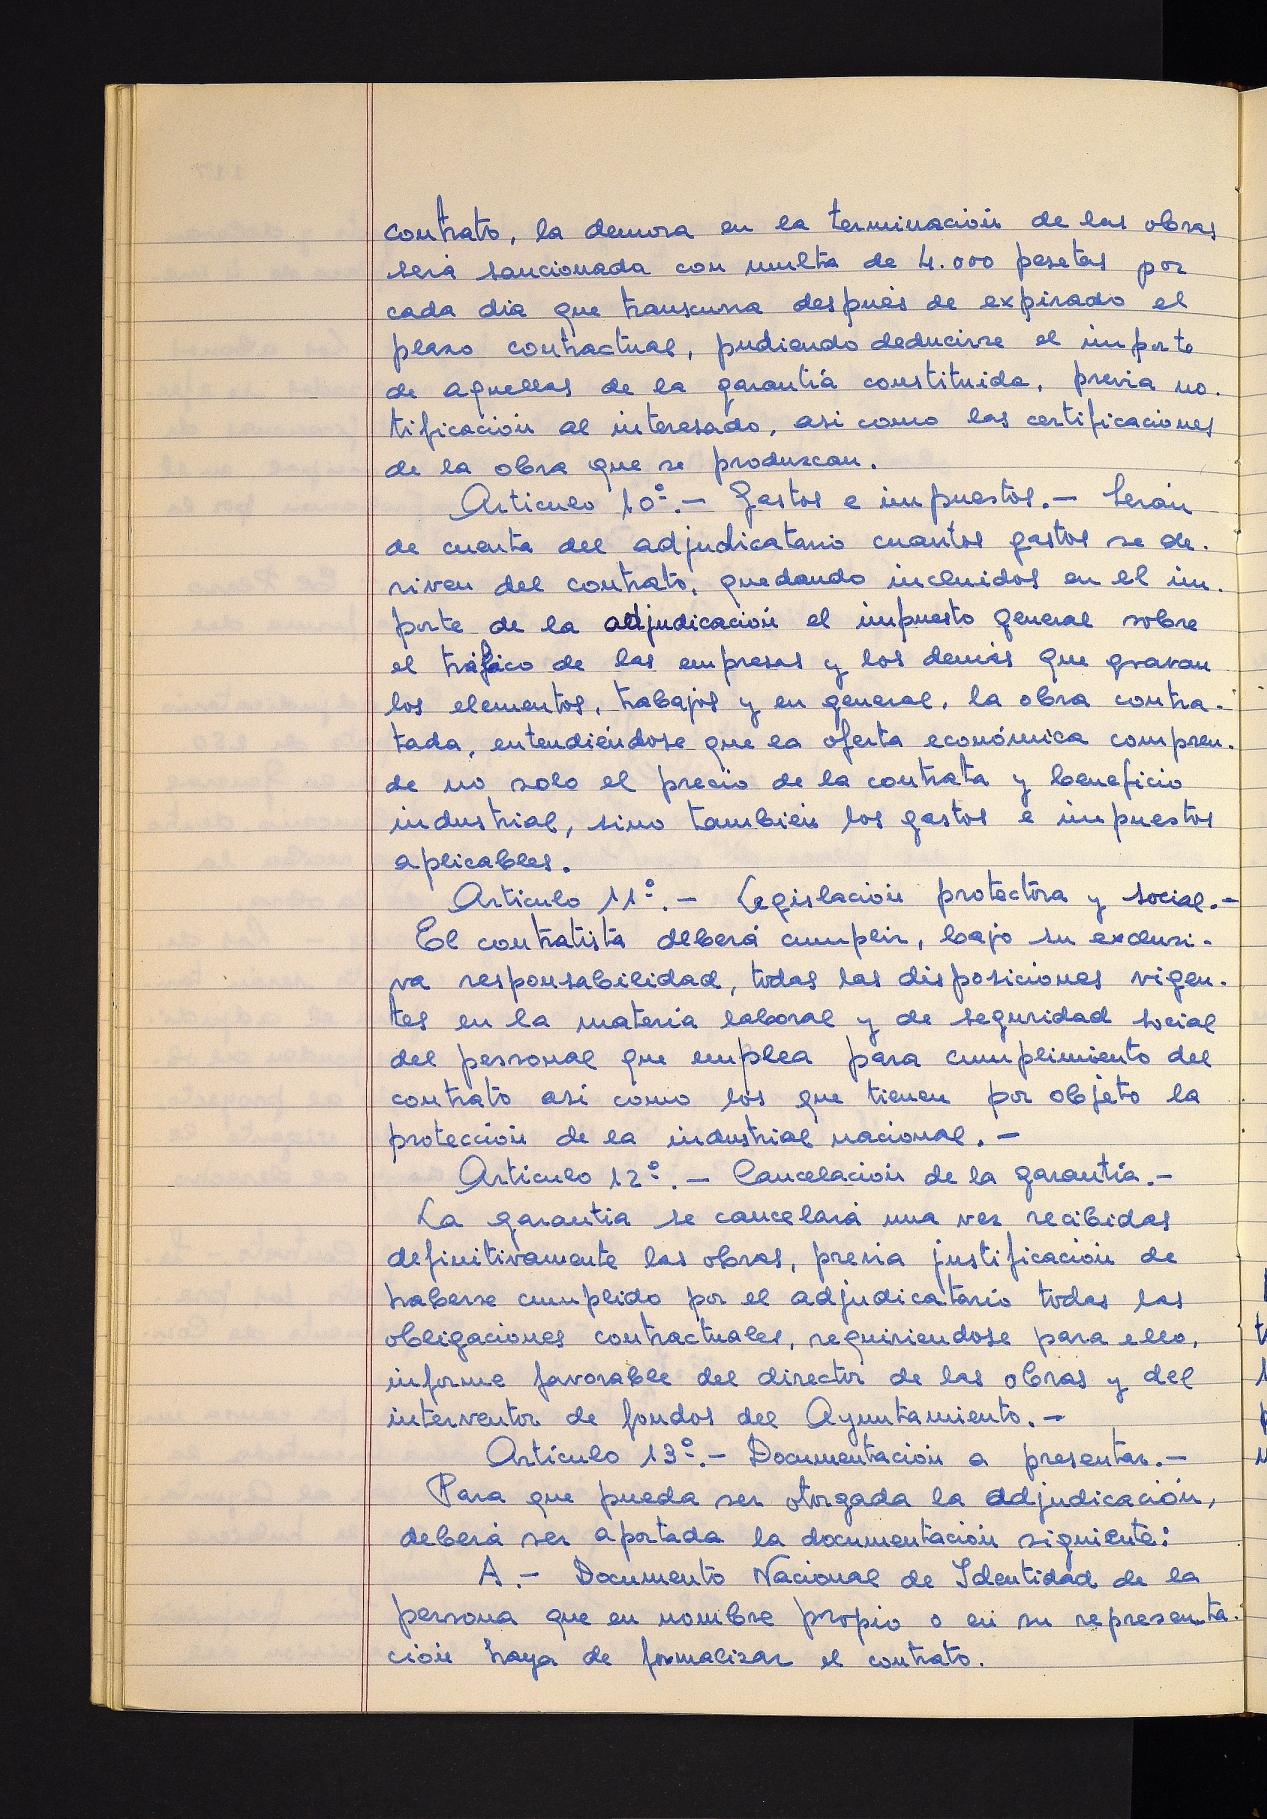 contrato, la demora en la terminación de las obras
será sancionada con multa de 4.000 pesetas por
cada día que transcurra después de expirado el
plazo contractual, pudiendo deducirse el importe
de aquellas de la garantiá constituida, previa no-
tificación al interesado, asi como las certificaciones
de la obra que se produzcan.
Articulo 10º.- Gastos e impuestos.- Serán
de cuenta del adjudicatario cuantos gastos se de-
riven del contrato, quedando incluidos en el im-
porte de la adjudicación el impuesto general sobre
el tráfico de las empresas y los demás que gravan
los elementos, trabajos y en general, la obra contra-
tada, entendiéndose que la oferta económica compren-
de no solo el precio de la contrata y beneficio
industrial, sino también los gastos e impuestos
aplicables.
Articulo 11º.- Legislación protectora y social.-
El contratista deberá cumplir, bajo su exclusi-
va responsabilidad, todas las disposiciones vigen-
tes en la materia laboral y de seguridad social
del personal que emplea para cumplimiento del
contrato asi como los que tienen por objeto la
protección de la industrial nacional.-
Artículo 12º.- Cancelación de la garantía.-
La garantia se cancelará una vez recibidas
definitivamente las obras, previa justificación de
haberse cumplido por el adjudicatario todas las
obligaciones contractuales, requiriendose para ello,
informe favorable del director de las obras y del
interventor de fondos del Ayuntamiento.-
Artículo 13º.- Documentación a presentar.-
Para que pueda ser otorgada la adjudicación,
deberá ser aportada la documentación siguiente:
A.- Documento Nacional de Identidad de la
persona que en nombre propio o en su representa-
ción haya de formalizar el contrato.